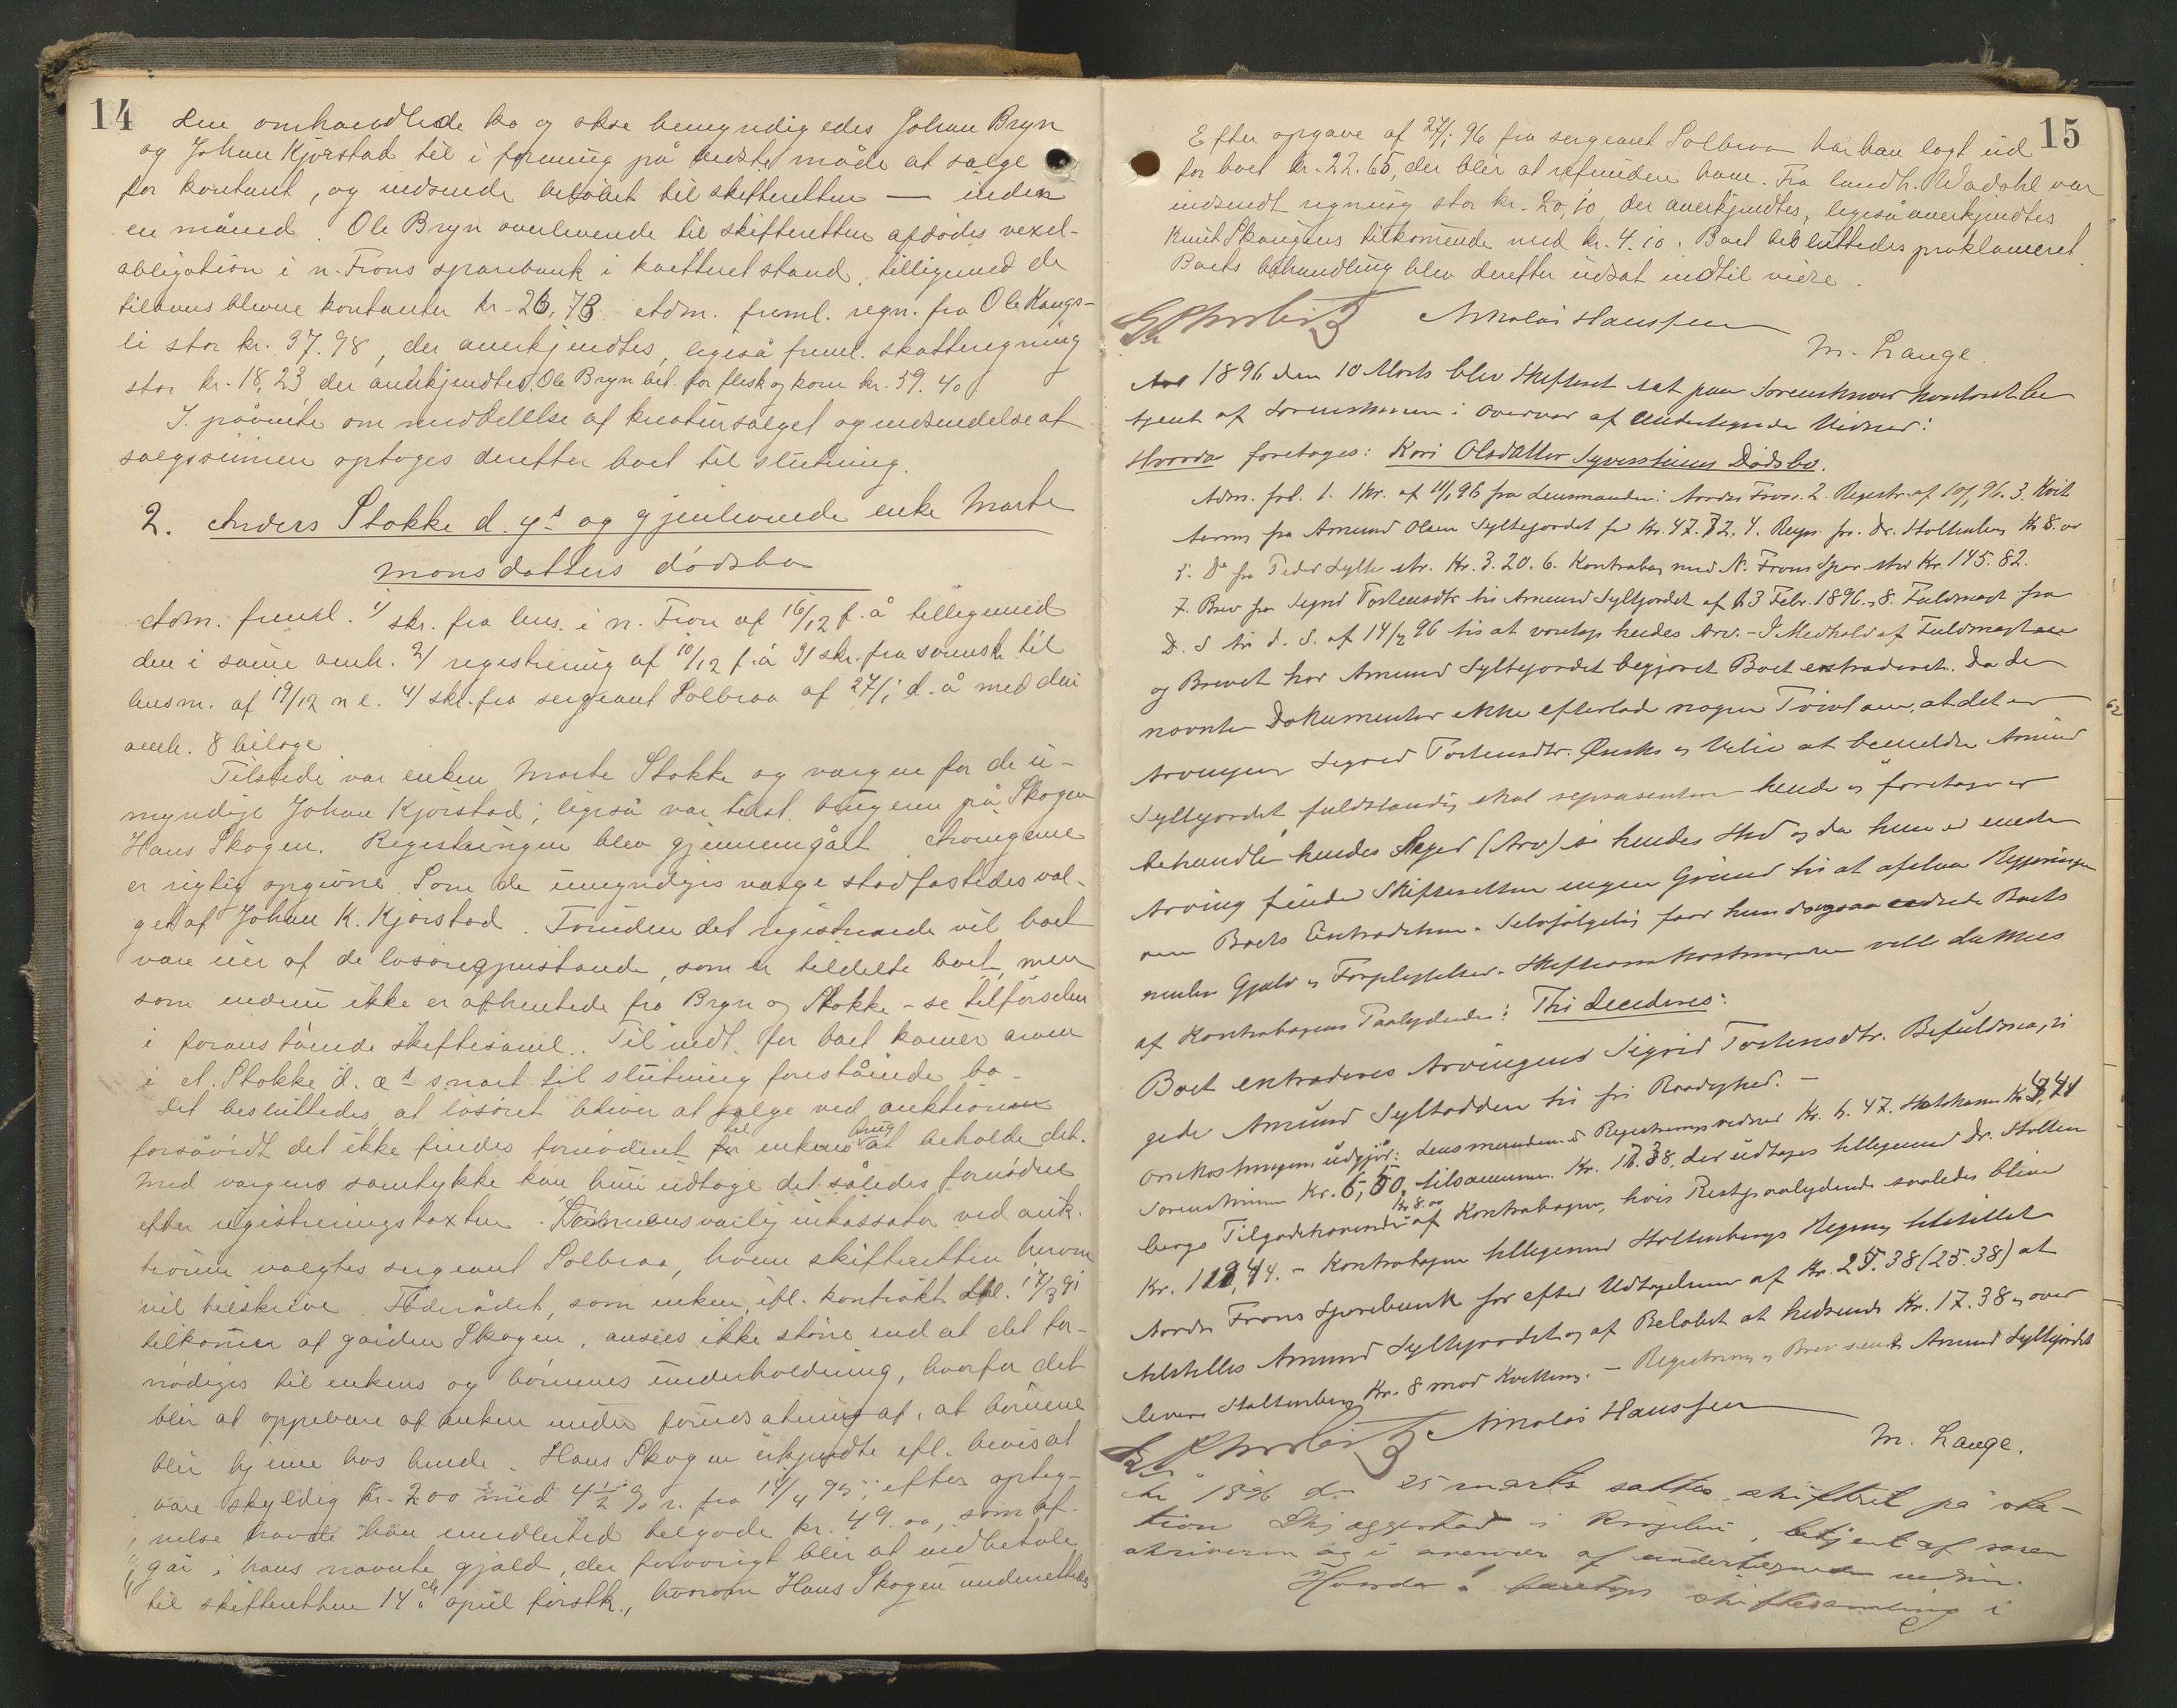 14
den omhandlede ko og okse bemyndigedes Johan Bryn
og Johan Kjorstad til i forening på bedste måde at sælge
for kontant, og indsende beløbet til skifteretten — inden
en måned. Ole Bryn overleverede til skifteretten afdødes vexel-
obligation i n. Frons sparebank i kvitteret stand, tilligemed de
tilovers blevne kontanter kr. 26,78. Adm. freml. regn. fra Ole Kongs-
li stor kr. 37.98, der anerkjendtes, ligeså freml. skatteregning
stor kr. 18,23 der anerkjendtes. Ole Bryn bet. for flesk og korn kr. 59.40
I påvente om meddelelse af kreatursalget og indsendelse af
salgssummen optoges derefter boet til slutning.
2. Anders Stokke d. y.s og gjenlevende enke Marte
Monsdatters dødsbo
Adm. freml. 1/ skr. fra lens. i n. Fron af 16/12 f. å tilligemed
den i samme omh. 2/ registrering af 10/12 f. å 3/ skr. fra sorensk. til
lensm. af 19/12 n l. 4/ skr. fra sergeant Solbraa af 27/1 d. å med deri
omh. 8 bilage
Tilstede var enken Marte Stokke og vergen for de u-
myndige Johan Kjorstad; ligeså var tilst. brugeren på Skogen
Hans Skogen. Registeringen blev gjennemgået. Arvingene
er rigtig opgivne. Som de umyndiges værge stadfæstedes val-
get af Johan K. Kjorstad. Foruden det registrerede vil boet
være eier af de løsøregjenstande, som er tildelte boet, men
som endnu ikke er afhentede fra Bryn og Stokke – se tilførselen
i foranstående skiftesaml. Til indt. for boet kommer arven
i A. Stokke d. æ.s snart til slutning forestående bo –
Det besluttedes, at løsøret bliver at sælge ved auktionen
forsåvidt det ikke findes fornødent til enkens brug at beholde det.
Med vergens samtykke kan hun udtage det således fornødne
efter registreringstaxten. Som ansvarlig inkassator ved auk-
tionen valgtes sergeant Solbraa, hvem skifteretten herom
vil tilskrive. Føderådet, som enken ifl. kontrakt thl. 17/3 91
tilkommer af gården Skogen, ansees ikke større end at det for-
nødiges til enkens og børnenes underholdning, hvorfor det
blir at oppebære af enken under forudsætning af, at børnene
blir hjemme hos hende. Hans Skogen erkjendte ifl. bevis at
være skyldig kr. 200 med 4½ % r. fra 14/4 95; efter opteg-
nelse havde han imidlertid tilgode kr. 49.00, som af-
går i hans nævnte gjæld, der forøvrigt blir at indbetale
til skifteretten 14de april førstk., hvorom Hans Skogen underrettedes.
15
Efter opgave af 27/1 96 fra sergeant Solbraa har han lagt ud
for boet kr. 22.65, der blir at refundere ham. Fra landh. Wadahl var
indsendt regning stor kr. 20,10, der anerkjendtes, ligeså anerkjendtes
Knut Skaugens tilkommende med kr. 4.10. Boet besluttedes proklameret.
Boets behandling blev derefter udsat indtil videre.
Nikolai Hanssen
M. Lange.
Aar 1896 den 10 Marts blev Skifteret sat paa Sorenskriverkontoret be
tjent af Sorenskriveren i Overvær af undertegnede Vidner:
Hvorda foretoges: Kari Olsdatter Syverstuens Dødsbo.
Adm. frl. 1. Skr. af 11/1 96 fra Lensmanden i Nordre Fron. 2. Registr. af 10/1 96. 3. Kvit
tering fra Amund Olsen Syltegjordet for Kr. 47.72. 4. Regn. fra Dr. Stoltenberg Kr 8.00
5. Do fra Peder Sylte str. Kr. 3.20. 6. Kontrabog med N. Frons Spar. stor Kr. 145.82.
7. Brev fra Sigrid Tostensdtr til Amund Syltjordet af 23 Febr. 1896. 8. Fuldmagt fra
D. S til d. S. af 14/2 96 til at varetage hendes Arv. – I Medhold af Fuldmagten
og Brevet har Amund Syltegjordet begjæret Boet extraderet. Da de
nævnte Dokumenter ikke efterlade nogen Tvivl om, at det er
Arvingen Sigrid Tostensdtr. Ønske og Vilie at bemeldte Amund
Syltegjordet fuldstændig skal repræsentere hende og foretage er
behandle hendes Sager (Arv) i hendes Sted og da hun er eneste
Arving finder Skifteretten ingen Grund til at afslaa Begjæringen
om Boets Extradition. Selvfølgelig faar hun dog ogsaa Boets
mulige Gjæld og Forpligtelser. Skifteomkostningerne ville dækkes
af Kontrabogens Paalydende: Thi decideres:
Boet extraderes Arvingens Sigrid Tostensdtr. Befuldmæg-
gede Amund Syltodden til fri Raadighed. –
Omkostningerne udgjør: Lensmanden i Registreringsvidner Kr. 6.47.
Sorenskriveren Kr. 5,50, tilsammen Kr. 17.38, der udtages tilligemed Dr. Stolten
bergs Tilgodehavende Kr 8.00 af Kontrabogen, hvis Restpaalydende saaledes bliver
Kr. 119,44. – Kontrabogen tilligemed Stoltenbergs Regning tilstilles
Nordre Frons Sparebank for efter Udtagelsen af Kr. 25.38 (25.38) at
tilstilles Amund Syltegjordet og af Beløbet at hidsende Kr. 17.38 og over
levere Stoltenberg Kr. 8 mod Kvittering. – Registrering og Brev sendt Amund Syltegjordet
Nikolai Hanssen
M. Lange.
År 1896 den 25 marts sattes skifteret på sta-
tion Skjæggestad i Ringebu, betjent af soren
skriveren og i overvær af undertegnede vidner.
Hvorda foretoges skiftesamling i